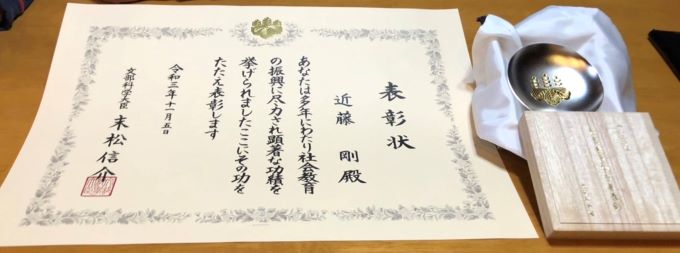 表彰状
近藤 剛 殿
あなたは多年にわたり社会教育
の振興に尽力され顕著な功績を
挙げられましたここにその功を
たたえ表彰します
令和三年十一月五日
文部科学大臣 末松信介